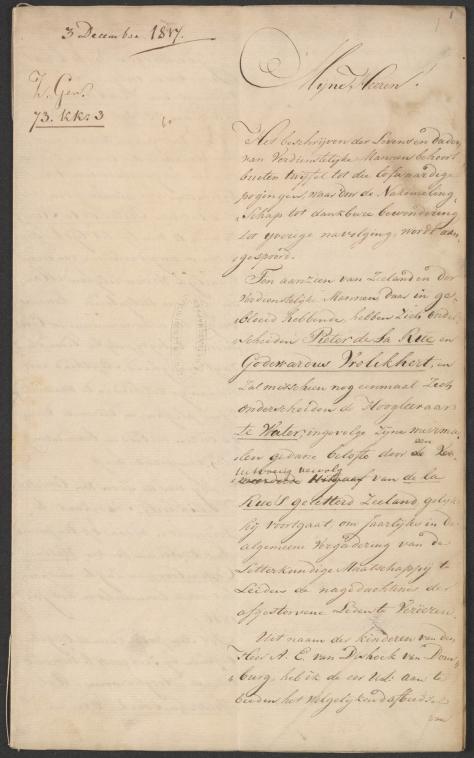 3 December 1817.
Z. Gen.
73. kk: 3
Mijne Heeren!
Het beschrijven der Levens en daden
van Verdienstelijke Mannen behoort
buiten twijfel tot die lofwaardige
pogingen, waardoor de Nakomeling-
schap tot dankbare bewondering
tot yverige navolging, wordt aan-
gespoord.
Ten aanzien van Zeeland en der
Verdienstelijke Mannen daar in ge-
bloeid hebbende, hebben zich onder
scheiden Pieter de la Rue en
Godewardus Vrolikhert, en
zal misschien nog eenmaal zich
onderscheiden de Hoogleeraar
te Water, ingevolge zijne meerma-
len gedane belofte door een
vervolg van de la
Rue's geletterd Zeeland gelijk
hij voortgaat, om jaarlijks in de
algemeene Vergadering van de
Letterkundige Maatschappij te
Leiden de nagedachtenis der
afgestorvene Leden te Vereeren.
Uit naam der kinderen van den
Heer A. E. van Dishoek van Dom-
burg, heb ik de eer UEd. aan te
bieden, het welgelijkend afbeeldsel